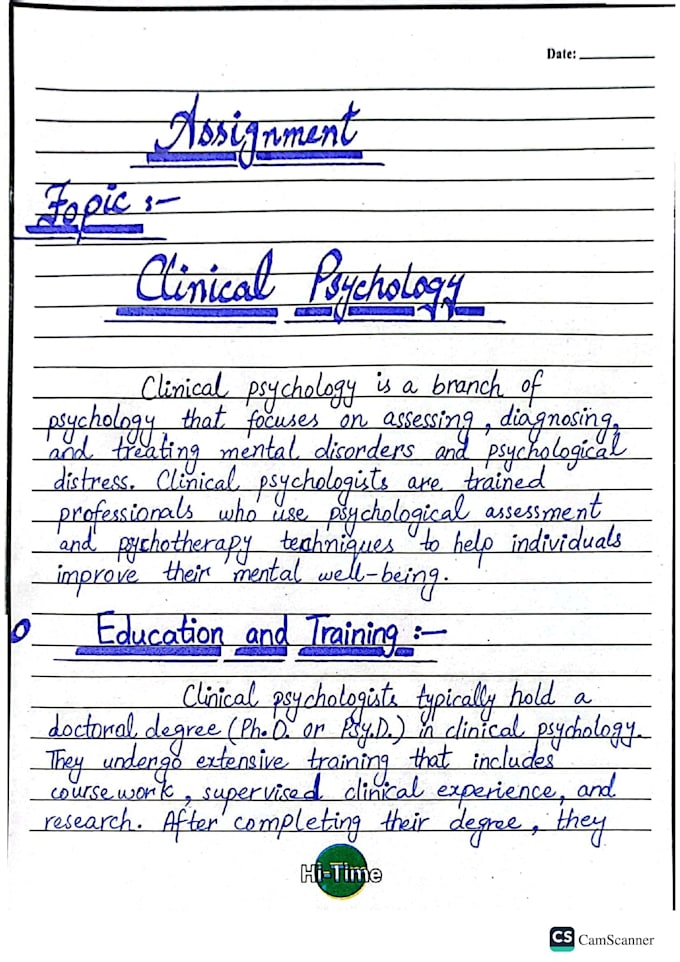 Date:
Assignment
Topic :-
Clinical Psychology
Clinical psychology is a branch of
psychology that focuses on assessing, diagnosing,
and treating mental disorders and psychological
distress. Clinical psychologists are trained
professionals who use psychological assessment
and pychotherapy techniques to help individuals
improve their mental well-being.
Education and Training :-
Clinical psychologists typically hold a
doctoral degree (Ph.D. or Psy.D.) in clinical psychology.
They undergo extensive training that includes
coursework, supervised clinical experience, and
research. After completing their degree, they
Hi-Time
CS CamScanner